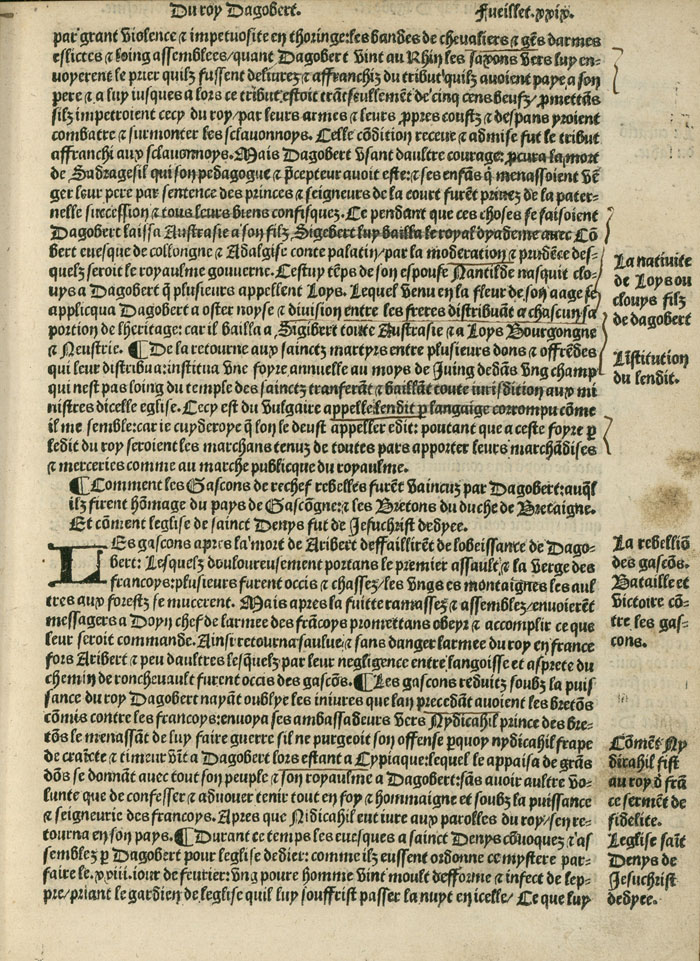 Du roy Dagobert.
Fueillet.xxix.
par grant violence ⁊ impetuosite en thoringe:les bandes de chevaliers ⁊ gẽs darmes
eslictes ⁊ loing assemblees/quant Dagobert vint au Rhin les saxons vers luy en-
voyerent le prier quilz fussent delivrez ⁊ affranchiz du tribut quilz avoient paye a son
pere ⁊ a luy iusques a lors ce tribut estoit trãt seullemẽt de cinq cens beufz/ ꝓmettãs
silz impetroient cecy du roy/par leurs armes ⁊ leurs ꝓpres coustz ⁊ despans yroient
combatre ⁊ surmonter les sclauonnoys. Celle cõdition receue ⁊ admise fut le tribut
affranchi aux sclauonnoys. Mais Dagobert vsant daultre courage: ꝓcura la mort
de Sadragesil qui son pedagogue ⁊ p̃cepteur avoit este:⁊ ses enfãs q̃ menassoient vẽ
ger leur pere par sentence des princes ⁊ seigneurs de la court furẽt priuez de la pater-
nelle succession ⁊ tous leurs biens confisquez. Ce pendant que ces choses se faisoient
Dagobert laissa Austrasie a son filz Sigebert luy bailla le royal dyademe auec Cõ
bert euesque de collongne ⁊ Adalgise conte palatin/par la moderation ⁊ prudẽce des-
quelz seroit le royaulme gouuerne. Cestuy tẽps de son espouse Nantilde nasquit clo-
uys a Dagobert q̃ plusieurs appellent Loys. Lequel venu en la fleur de son aage se
applicqua Dagobert a oster noyse ⁊ division entre les freres distribuãt a chascun sa
portion de lheritage: car il bailla a Sigibert toute Austrasie ⁊ a Loys Bourgongne
⁊ Neustrie. ¶De la retourne aux sainctz martyrs entre plusieurs dons ⁊ offrẽdes
qui leur distribua:institua vne foyre annuelle au moys de Juing dedãs vng champ
qui nest pas loing du temple des sainctz tranferant ⁊ baillãt toute iurisdition aux mi
nistres dicelle eglise. Cecy est du vulgaire appelle lendit p langaige corrompu cõme
il me semble:car ie cuyderoye q̃ lon le deust appeller edit: poutant que a ceste foyre p
ledit du roy seroient les marchans tenuz de toutes pars apporter leurs marchãdises
⁊ merceries comme au marche publicque du royaulme.
¶Comment les Gascons de rechef rebelles furẽt vaincuz par Dagobert:auq̃l
ilz firent hõmage du pays de Gascõgne:⁊ les Bretons du duche de Bretaigne.
Et cõment leglise de sainct Denys fut de Jesuchrist dedyee.
LEs gascons apres la mort de Aribert deffaillirẽt de lobeissance de Dago-
bert: Lesquelz douloureusement portans le premier assault ⁊ la verge des
francoys:plusieurs furent occis ⁊ chassez/les vngs es montaignes les aul
tres aux forestz se mucerent. Mais apres la fuitte ramassez ⁊ assemblez/enuoierẽt
messagers a Doyn chef de larmee des frãcoys promettans obeyr ⁊ accomplir ce que
leur seroit commande. Ainsi retourna saulue ⁊ sans danger larmee du roy en france
fors Aribert ⁊ peu daultres lesquelz par leur negligence entre langoisse et asprete du
chemin de ronchevault furent occis des gascõs. ¶Les gascons reduitz soubz la puis
sance du roy Dagobert nayãt oublye les iniures que lan precedãt avoient les bretõs
cõmis contre les francoys:enuoya ses ambassadeurs vers Nydicahil prince des bre-
tõs le menassãt de luy faire guerre sil ne purgeoit son offense ꝑquoy nydicahil frape
de craĩcte ⁊ timeur vĩt a Dagobert lors estant a Cypiaque:lequel le appaisa de grãs
dõs se donnãt avec tout son peuple ⁊ son royaulme a Dagobert:sãs avoir aultre vo-
lunte que de confesser ⁊ aduouer tenir tout en foy ⁊ hommaigne et soubz la puissance
⁊ seigneurie des francoys. Apres que Nidicahil eut iure aux parolles du roy/sen re-
tourna en son pays. ¶Durant ce temps les euesques a sainct Denys cõuoquez ⁊ as
semblez p Dagobert pour leglise dedier: comme ilz eussent ordonne ce mystere par-
faire le.xxiii.iour de feurier:vng poure homme vint moult defforme ⁊ infect de lep-
pre/priant le gardien de leglise quil luy souffrist passer la nuyt en icelle/ Ce que luy
La nativite
de Loys ou
clouys filz
de dagobert
Lĩstitution
du lendit.
La rebelliõ
des gascõs.
Bataille et
victoire cõ-
tre les gas-
cons.
Cõmẽt Ny
dicahil fist
au roy d̃ frã
ce sermẽt de
fidelite.
Leglise saĩt
Denys de
Jesuchrist
dedyee.